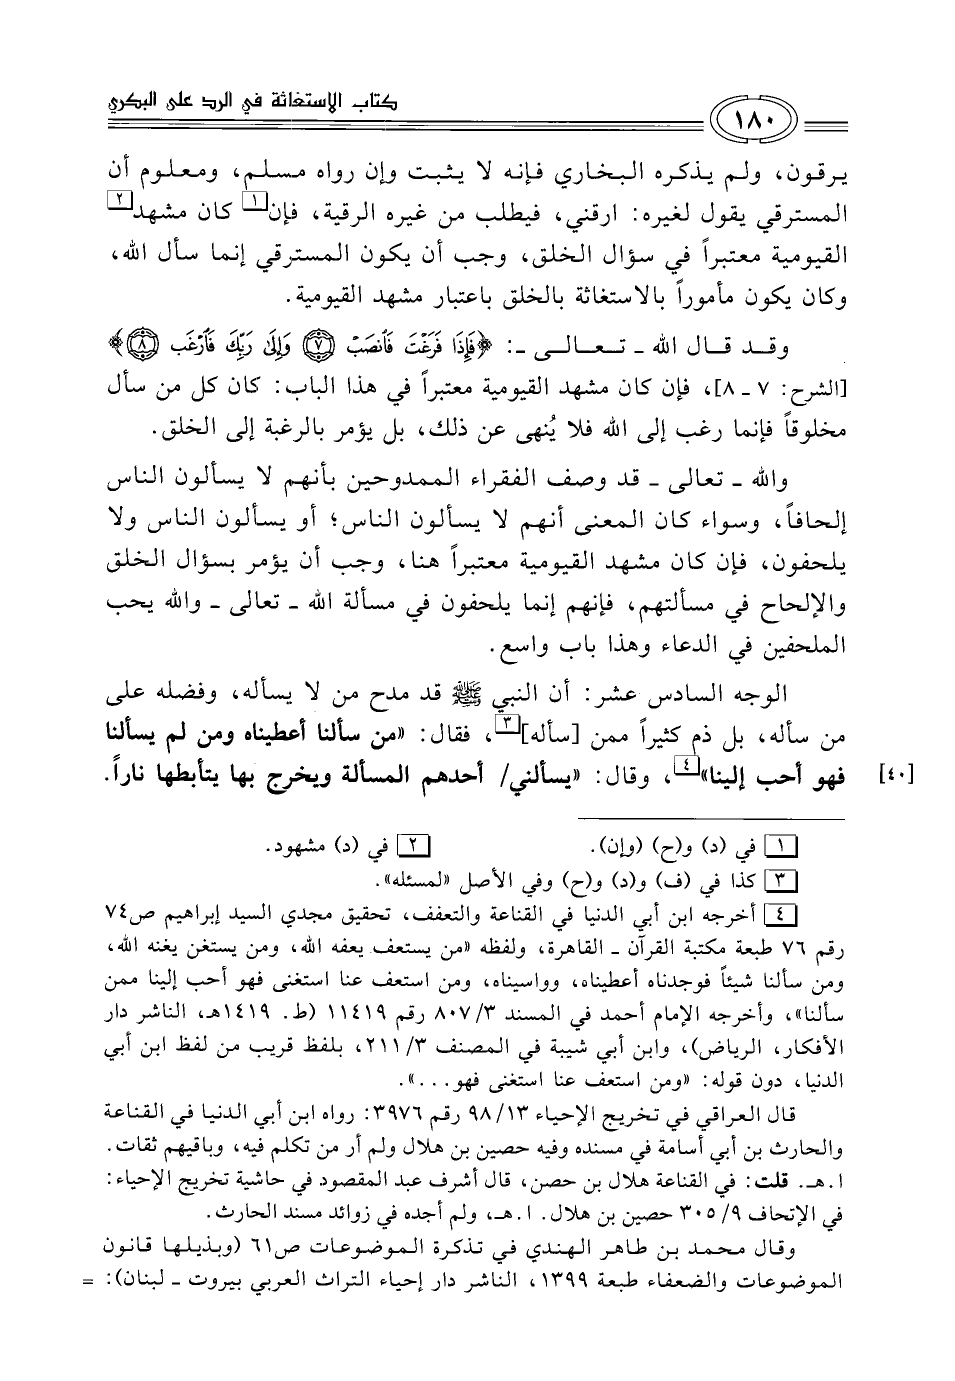 كتاب الاستغاثة في الرد على البكري
١٨٠
يرقون، ولم يذكره البخاري فإنه لا يثبت وإن رواه مسلم، ومعلوم أن
المسترقي يقول لغيره: ارقني، فيطلب من غيره الرقية، فإن[١] كان مشهد[٢]
القيومية معتبراً في سؤال الخلق، وجب أن يكون المسترقي إنما سأل الله،
وكان يكون مأموراً بالاستغاثة بالخلق باعتبار مشهد القيومية.
وقد قال الله ـ تعالى ـ: ﴿فَإِذَا فَرَغْتَ فَٱنصَبْ ٧ وَإِلَىٰ رَبِّكَ فَٱرْغَب ٨﴾
[الشرح: ٧ ـ ٨]، فإن كان مشهد القيومية معتبراً في هذا الباب: كان كل من سأل
مخلوقاً فإنما رغب إلى الله فلا يُنهى عن ذلك، بل يؤمر بالرغبة إلى الخلق.
والله ـ تعالى ـ قد وصف الفقراء الممدوحين بأنهم لا يسألون الناس
إلحافاً، وسواء كان المعنى أنهم لا يسألون الناس؛ أو يسألون الناس ولا
يلحفون، فإن كان مشهد القيومية معتبراً هنا، وجب أن يؤمر بسؤال الخلق
والإلحاح في مسألتهم، فإنهم إنما يلحفون في مسألة الله ـ تعالى ـ والله يحب
الملحفين في الدعاء وهذا باب واسع.
الوجه السادس عشر: أن النبي ﷺ قد مدح من لا يسأله، وفضله على
من سأله، بل ذم كثيراً ممن [سأله][٣]، فقال: «من سألنا أعطيناه ومن لم يسألنا
فهو أحب إلينا»[٤]، وقال: «يسألني/ أحدهم المسألة ويخرج بها يتأبطها ناراً.
[٤٠]
[١] في (د) و(ح) (وإن).
[٢] في (د) مشهود.
[٣] كذا في (ف) و(د) و(ح) وفي الأصل «لمسئله».
[٤] أخرجه ابن أبي الدنيا في القناعة والتعفف، تحقيق مجدي السيد إبراهيم ص٧٤
رقم ٧٦ طبعة مكتبة القرآن ـ القاهرة، ولفظه «من يستعف يعفه الله، ومن يستغن يغنه الله،
ومن سألنا شيئاً فوجدناه أعطيناه، وواسيناه، ومن استعف عنا استغنى فهو أحب إلينا ممن
سألنا»، وأخرجه الإمام أحمد في المسند ٨٠٧/٣ رقم ١١٤١٩ (ط. ١٤١٩هـ، الناشر دار
الأفكار، الرياض)، وابن أبي شيبة في المصنف ٢١١/٣، بلفظ قريب من لفظ ابن أبي
الدنيا، دون قوله: «ومن استعف عنا استغنى فهو...».
قال العراقي في تخريج الإحياء ٩٨/١٣ رقم ٣٩٧٦: رواه ابن أبي الدنيا في القناعة
والحارث بن أبي أسامة في مسنده وفيه حصين بن هلال ولم أر من تكلم فيه، وباقيهم ثقات.
ا.هـ. قلت: في القناعة هلال بن حصن، قال أشرف عبد المقصود في حاشية تخريج الإحياء:
في الإتحاف ٣٠٥/٩ حصين بن هلال. ا.هـ، ولم أجده في زوائد مسند الحارث.
وقال محمد بن طاهر الهندي في تذكرة الموضوعات ص٦١ (وبذيلها قانون
الموضوعات والضعفاء طبعة ١٣٩٩، الناشر دار إحياء التراث العربي بيروت ـ لبنان): =